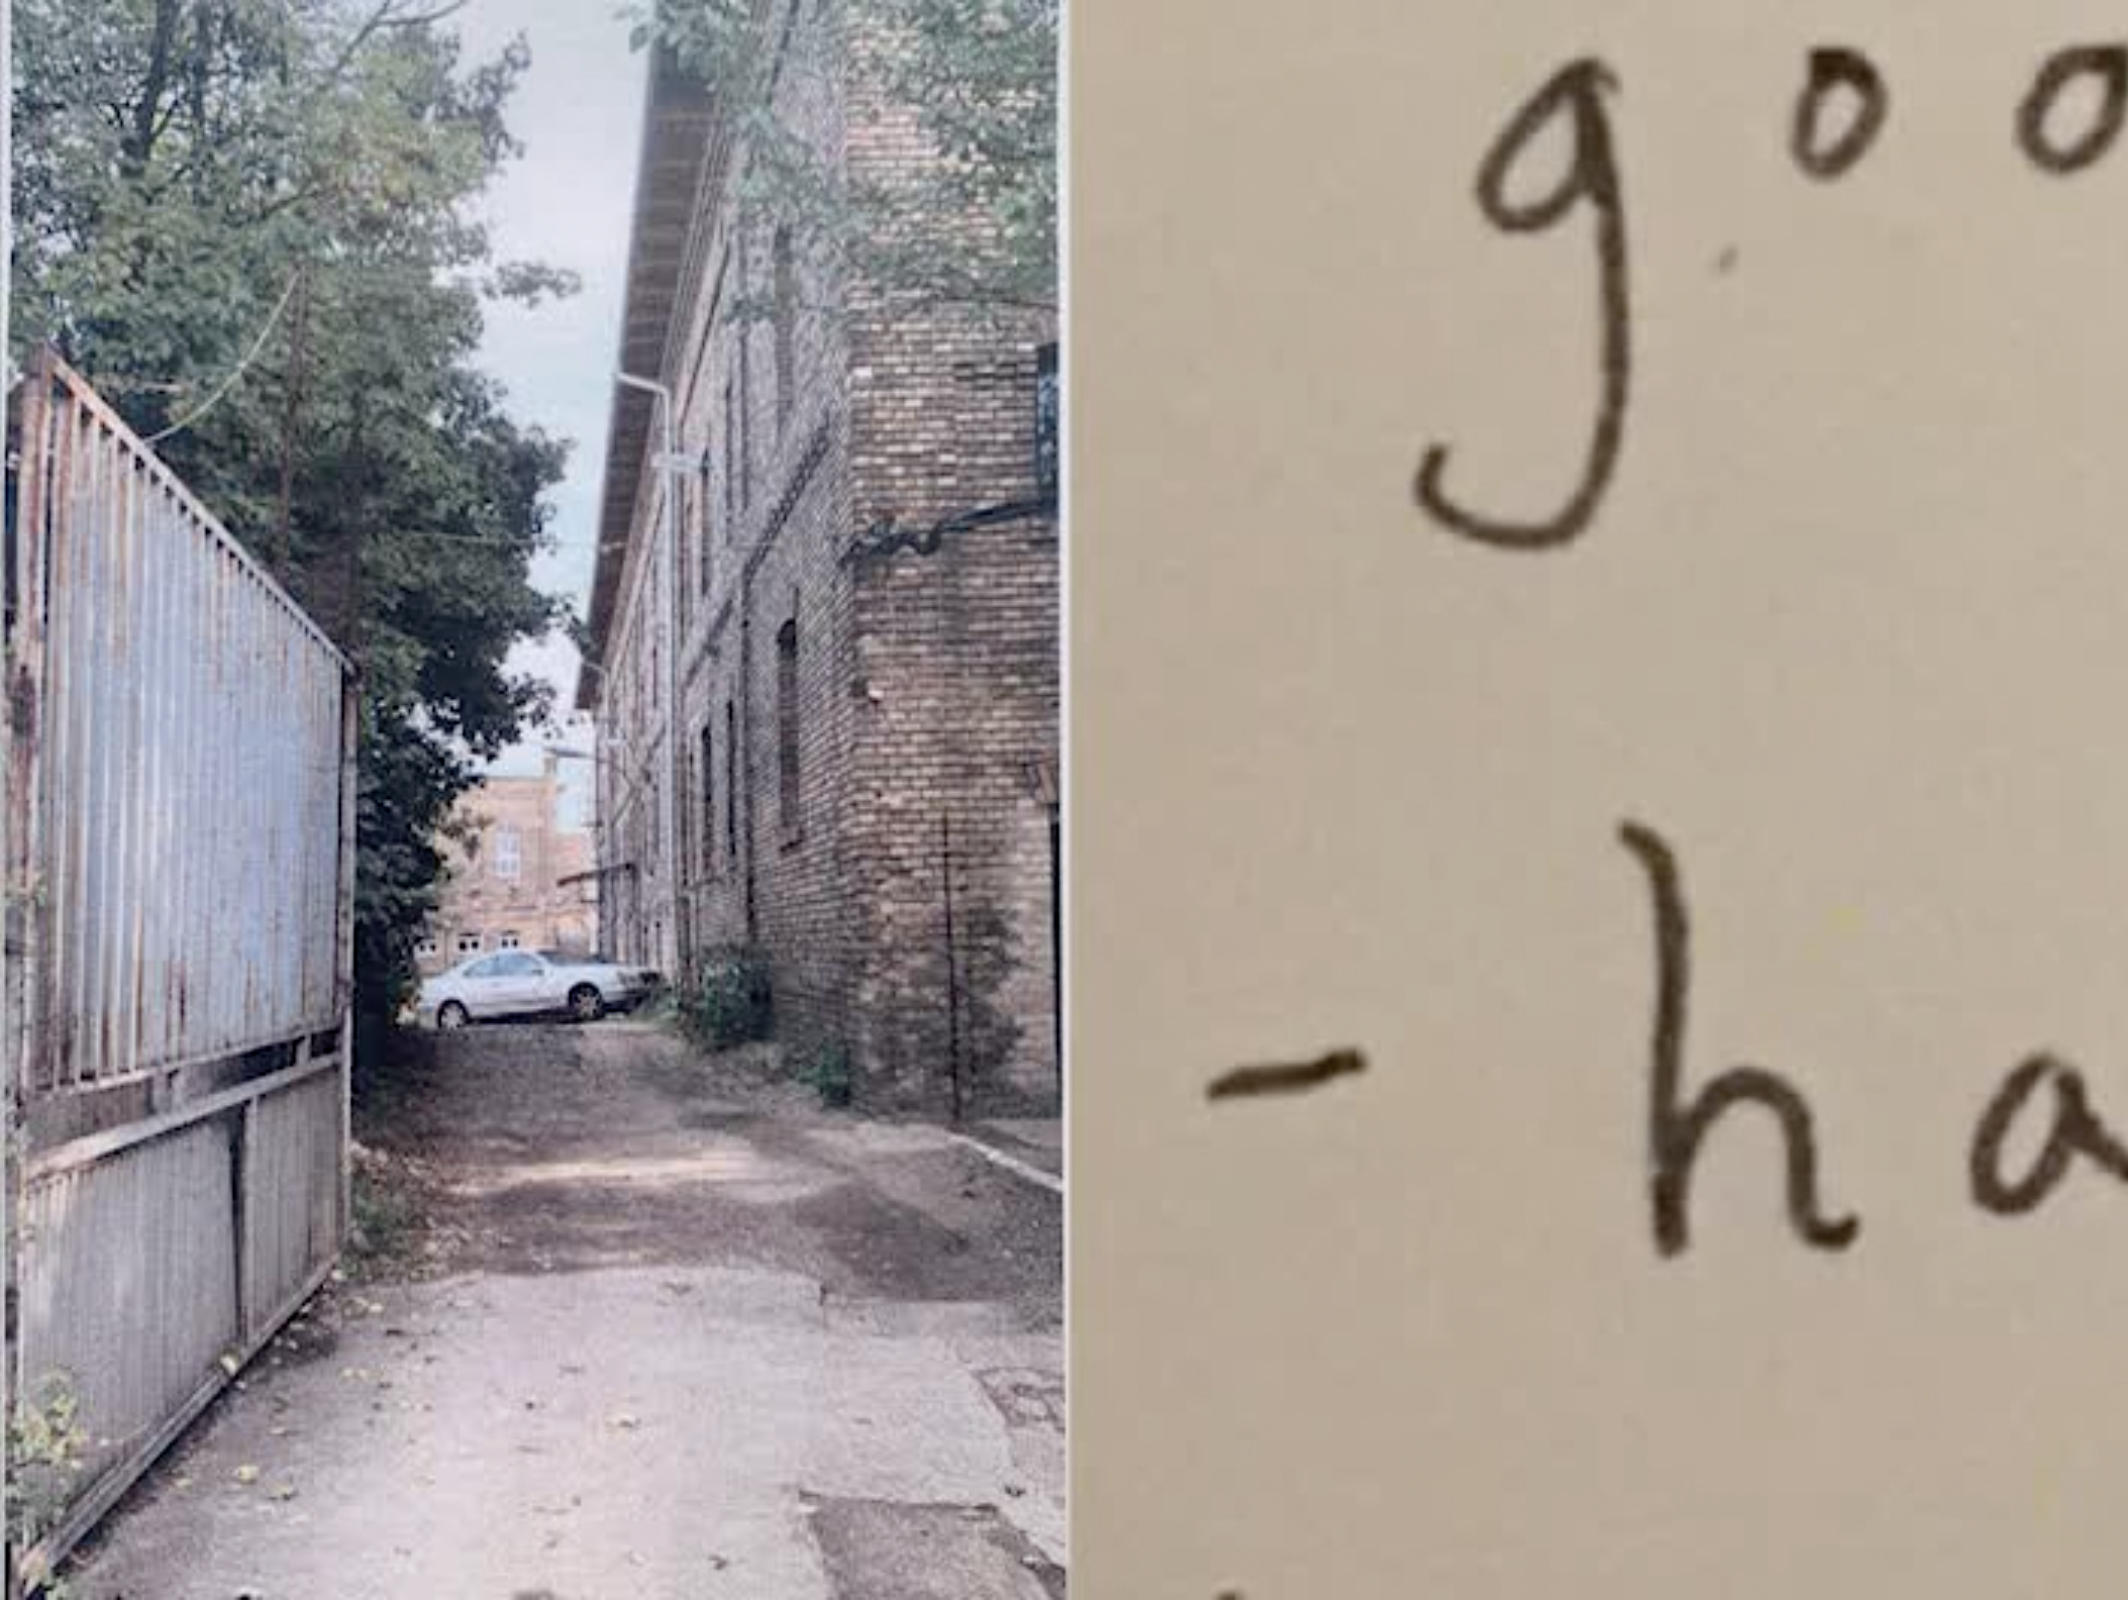 goo
- ha